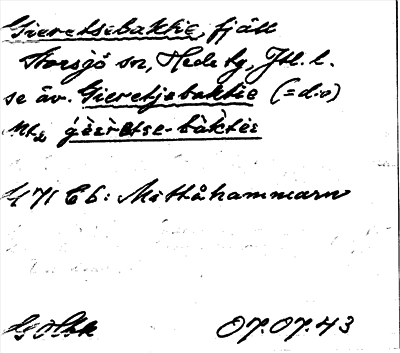 Gieretsebaktie, fjäll
Storsjö sn, Hede tg, Jtl. l.
se äv. Gieretjebaktie (= d:o)
Mt, gèèrètse-bàktèè
17 C6: Mittåhammaren
07.07.43